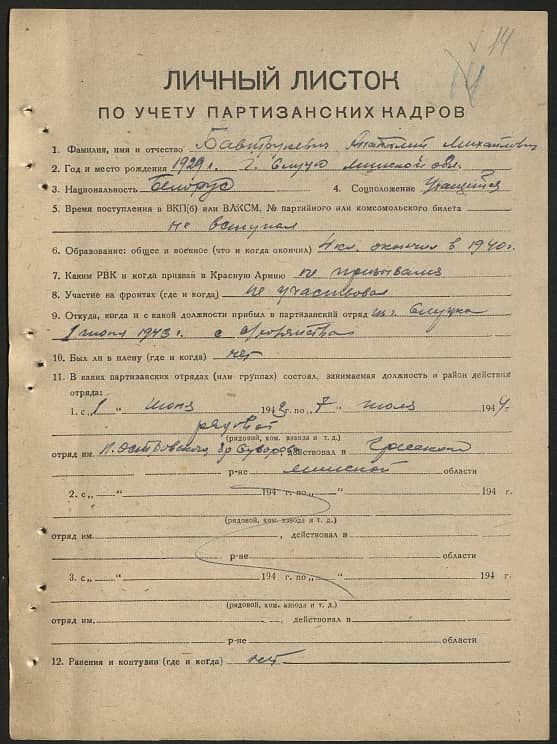 14
ЛИЧНЫЙ ЛИСТОК
ПО УЧЕТУ ПАРТИЗАНСКИХ КАДРОВ
1. Фамилия, имя и отчество Бавтрукевич Анатолий Михайлович
2. Год и место рождения 1929 г. г. Слуцк Минской обл.
3. Национальность Белорус 4. Соцположение Учащийся
5. Время поступления в ВКП(б) или ВЛКСМ, № партийного или комсомольского билета
не вступал
6. Образование: общее и военное (что и когда окончил) 4 кл. окончил в 1940 г.
7. Каким РВК и когда призван в Красную Армию не призывался
8. Участие на фронтах (где и когда) не участвовал
9. Откуда, когда и с какой должности прибыл в партизанский отряд из г. Слуцка
1 июня 1943 г. с
10. Был ли в плену (где и когда) нет
11. В каких партизанских отрядах (или группах) состоял, занимаемая должность и район действия
отряда:
1. с „1“ июня 1943 г. по „7“ июля 1944 г.
рядовой
(рядовой, ком. взвода и т. д.)
отряд им. Н. Островского бр Суворова, действовал в Гресском
р-не Минской области
2. с „ “ 194 г. по „ “ 194 г.
(рядовой, ком. взвода и т. д.)
отряд им. , действовал в
р-не области
3. с „ “ 194 г. по „ “ 194 г.
(рядовой, ком. взвода и т. д.)
отряд им. , действовал в
р-не области
12. Ранения и контузии (где и когда) нет